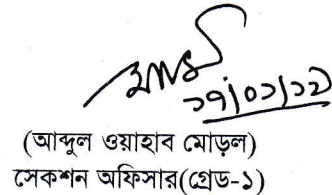 ১৭/০১/১১
(আব্দুল ওয়াহাব মোড়ল)
সেকশন অফিসার(গ্রেড-১)